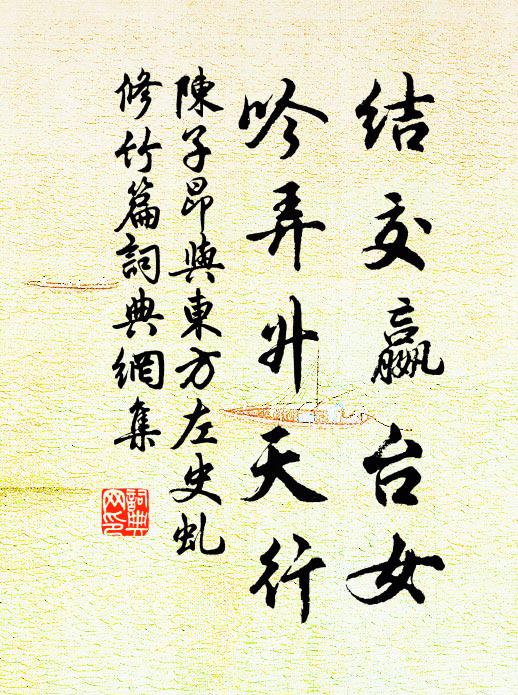 結交嬴台女
吟弄升天行
陳子昂與東方左史虬
修竹篇詞典網集
詞典
网印